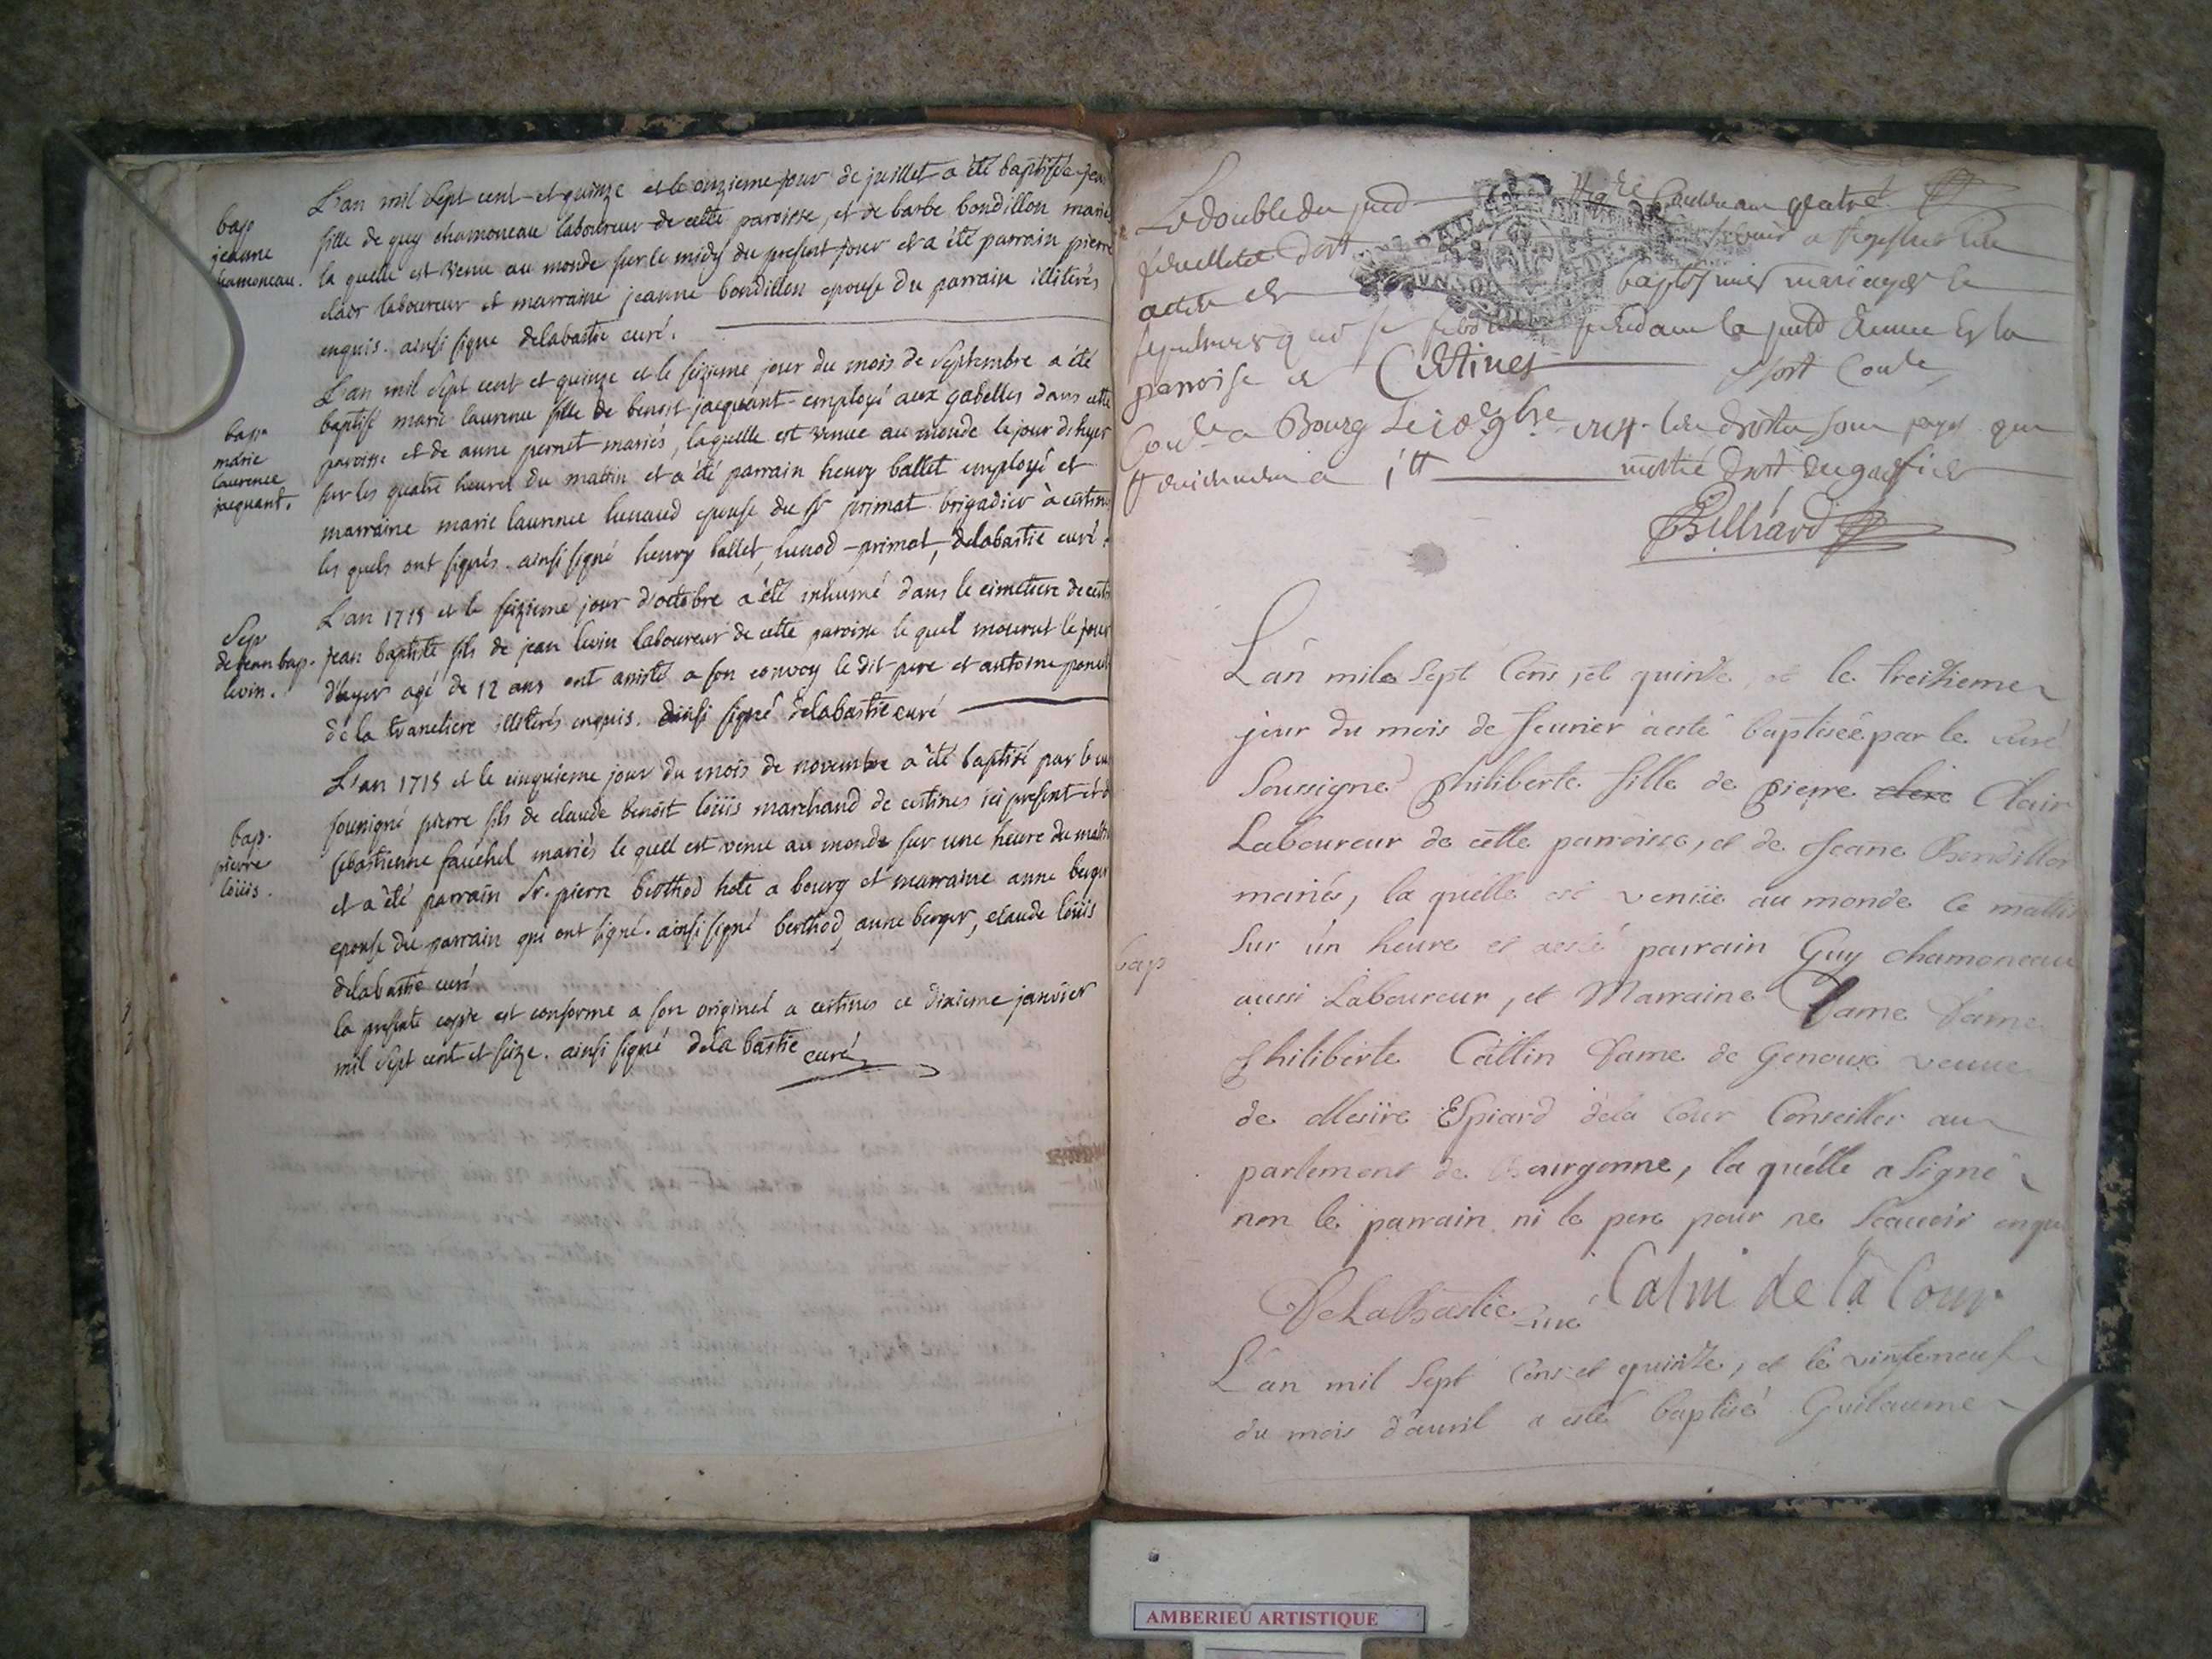 L'an mil sept cent et quinze et le onzieme jour de juillet a été baptisée
bap
jeanne
chamoneau.
fille de guy chamoneau laboureur de cette paroisse, et de barbe bondillon mariés
la quelle est venue au monde sur le midy du present jour et a été parrain pierre
claer laboureur et marraine jeanne bondillon epouse du parrain illiterés
enquis. ainsi signe delabastie curé.
L'an mil sept cent et quinze et le seizieme jour du mois de septembre a été
bap.
marie
laurence
jacquant.
baptisé marie laurence fille de benoit jacquant employé aux gabelles dans cette
paroisse et de anne pernet mariés, laquelle est venue au monde le jour d'hyer
sur les quatre heures du mattin et a été parrain henry ballet employé et
marraine marie laurence lunaud epouse du sr primat brigadier à certines
les quels ont signés. ainsi signé henry ballet, lunod-primat, delabastie curé.
L'an 1715 et le seizieme jour d'octobre a été inhumé dans le cimetiere de
Sep
de jean bap.
livin.
jean baptiste fils de jean livin laboureur de cette paroisse le quel mourut le jour
d'hyer agé de 12 ans ont assisté a son convoy le dit pere et antoine
de la trancliere illiterés enquis. ainsi signé delabastie curé
L'an 1715 et le cinquieme jour du mois de novembre a été baptisé par le
bap.
pierre
loüis.
sousigné pierre fils de claude benoit loüis marchand de certines ici present et
sebastienne fauchel mariés le quel est venu au monde sur une heure du mattin
et a été parrain Sr. pierre berthod hote a bourg et marraine anne berger
epouse du parrain qui ont signé. ainsi signé berthod, anne berger, claude loüis
delabastie curé
la presente copie est conforme a son original a certines ce dixieme janvier
mil sept cent et seize. ainsi signé dela bastie curé
Le double du
feuillet dont quatre
acte de baptesmes mariages
sepulture qui se pendant la annee
parroisse de Certines
a Bourg le
moitié
Billiard
L'an mile sept cens, et quinze, et le treizieme
jour du mois de feurier a esté baptiseé par le curé
soussigné philiberte fille de pierre clere Clair
Laboureur de cette parroisse, et de Jeane Bondillon
mariés, la quelle est venüe au monde le mattin
bap
sur ùn heure et a esté parrain Guy chamoneau
aussi Laboureur, et Marraine Dame Dame
philiberte Cattin Dame de Genoux veuue
de Messire Espiard dela Cour Conseiller au
parlement de Bourgonne, la quélle a signé
non le parrain ni le pere pour ne scauoir
DeLaBastie curé Catin de la Cour
L'an mil sept cens et quinze, et le vinteneuf
du mois d'auril a esté baptisé Guilaume
AMBERIEU ARTISTIQUE